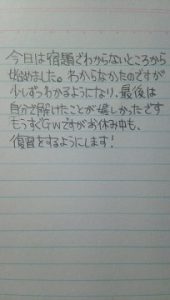 今日は宿題でわからないところから
始めました。わからなかたのですが
少しずつわかるようになり、最後は
自分で解けたことが嬉しかったです
もうすぐGWですがお休み中も、
復習をするようにします!